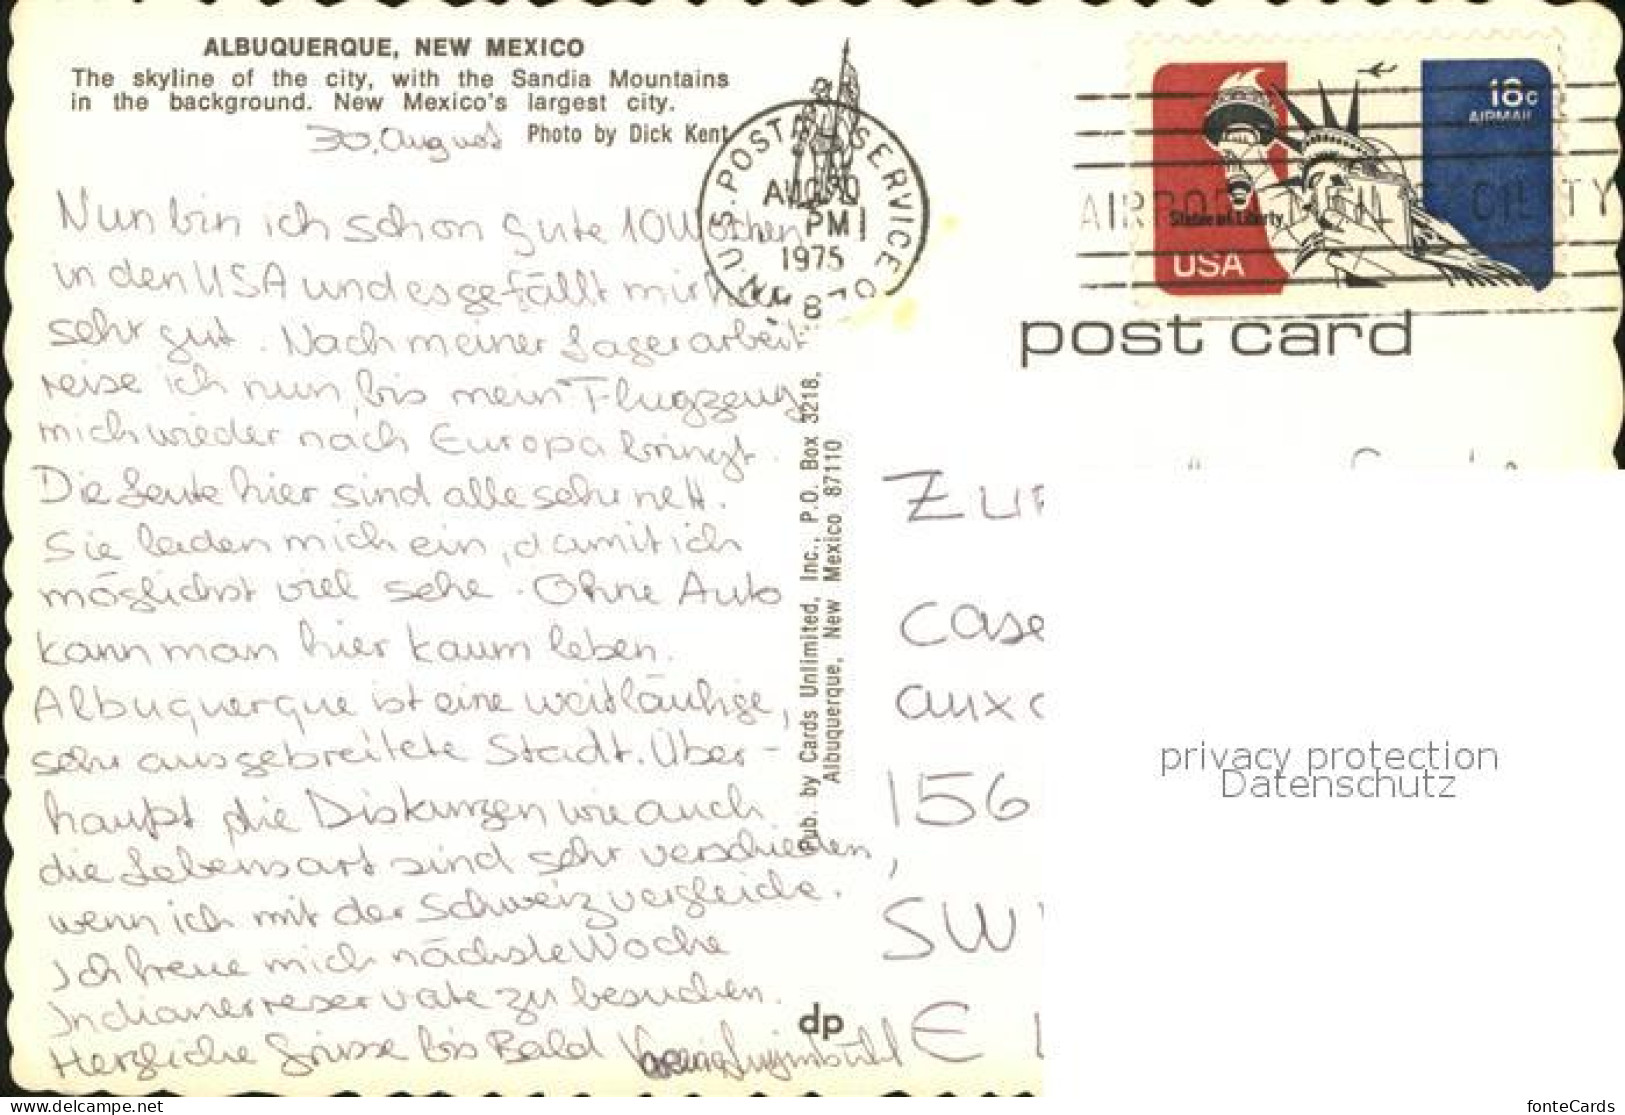 ALBUQUERQUE, NEW MEXICO
The skyline of the city, with the Sandia Mountains
in the background. New Mexico's largest city.
Photo by Dick Kent
30. August
Nun bin ich schon gute 10 Wochen
in den USA und es gefällt mir
sehr gut. Nach meiner Lagerarbeit
reise ich nun, bis mein Flugzeug
mich wieder nach Europa bringt.
Die Leute hier sind alle sehr nett.
Sie laden mich ein, damit ich
möglichst viel sehe. Ohne Auto
kann man hier kaum leben.
Albuquerque ist eine weitläufige,
sehr ausgebreitete Stadt. Über-
haupt die Distanzen wie auch
die Lebensart sind sehr verschieden,
wenn ich mit der Schweiz vergleiche.
Ich freue mich nächste Woche
Indianerreservate zu besuchen.
Herzliche Grüsse bis Bald
Pub. by Cards Unlimited, Inc., P.O. Box 3218,
Albuquerque, New Mexico 87110
dp
U.S. POSTAL SERVICE
AUG 30
PM
1975
18c
AIRMAIL
Statue of Liberty
USA
AIRPORT MAIL FACILITY
post card
case
aux
156
SW
E
privacy protection
Datenschutz
fonteCards